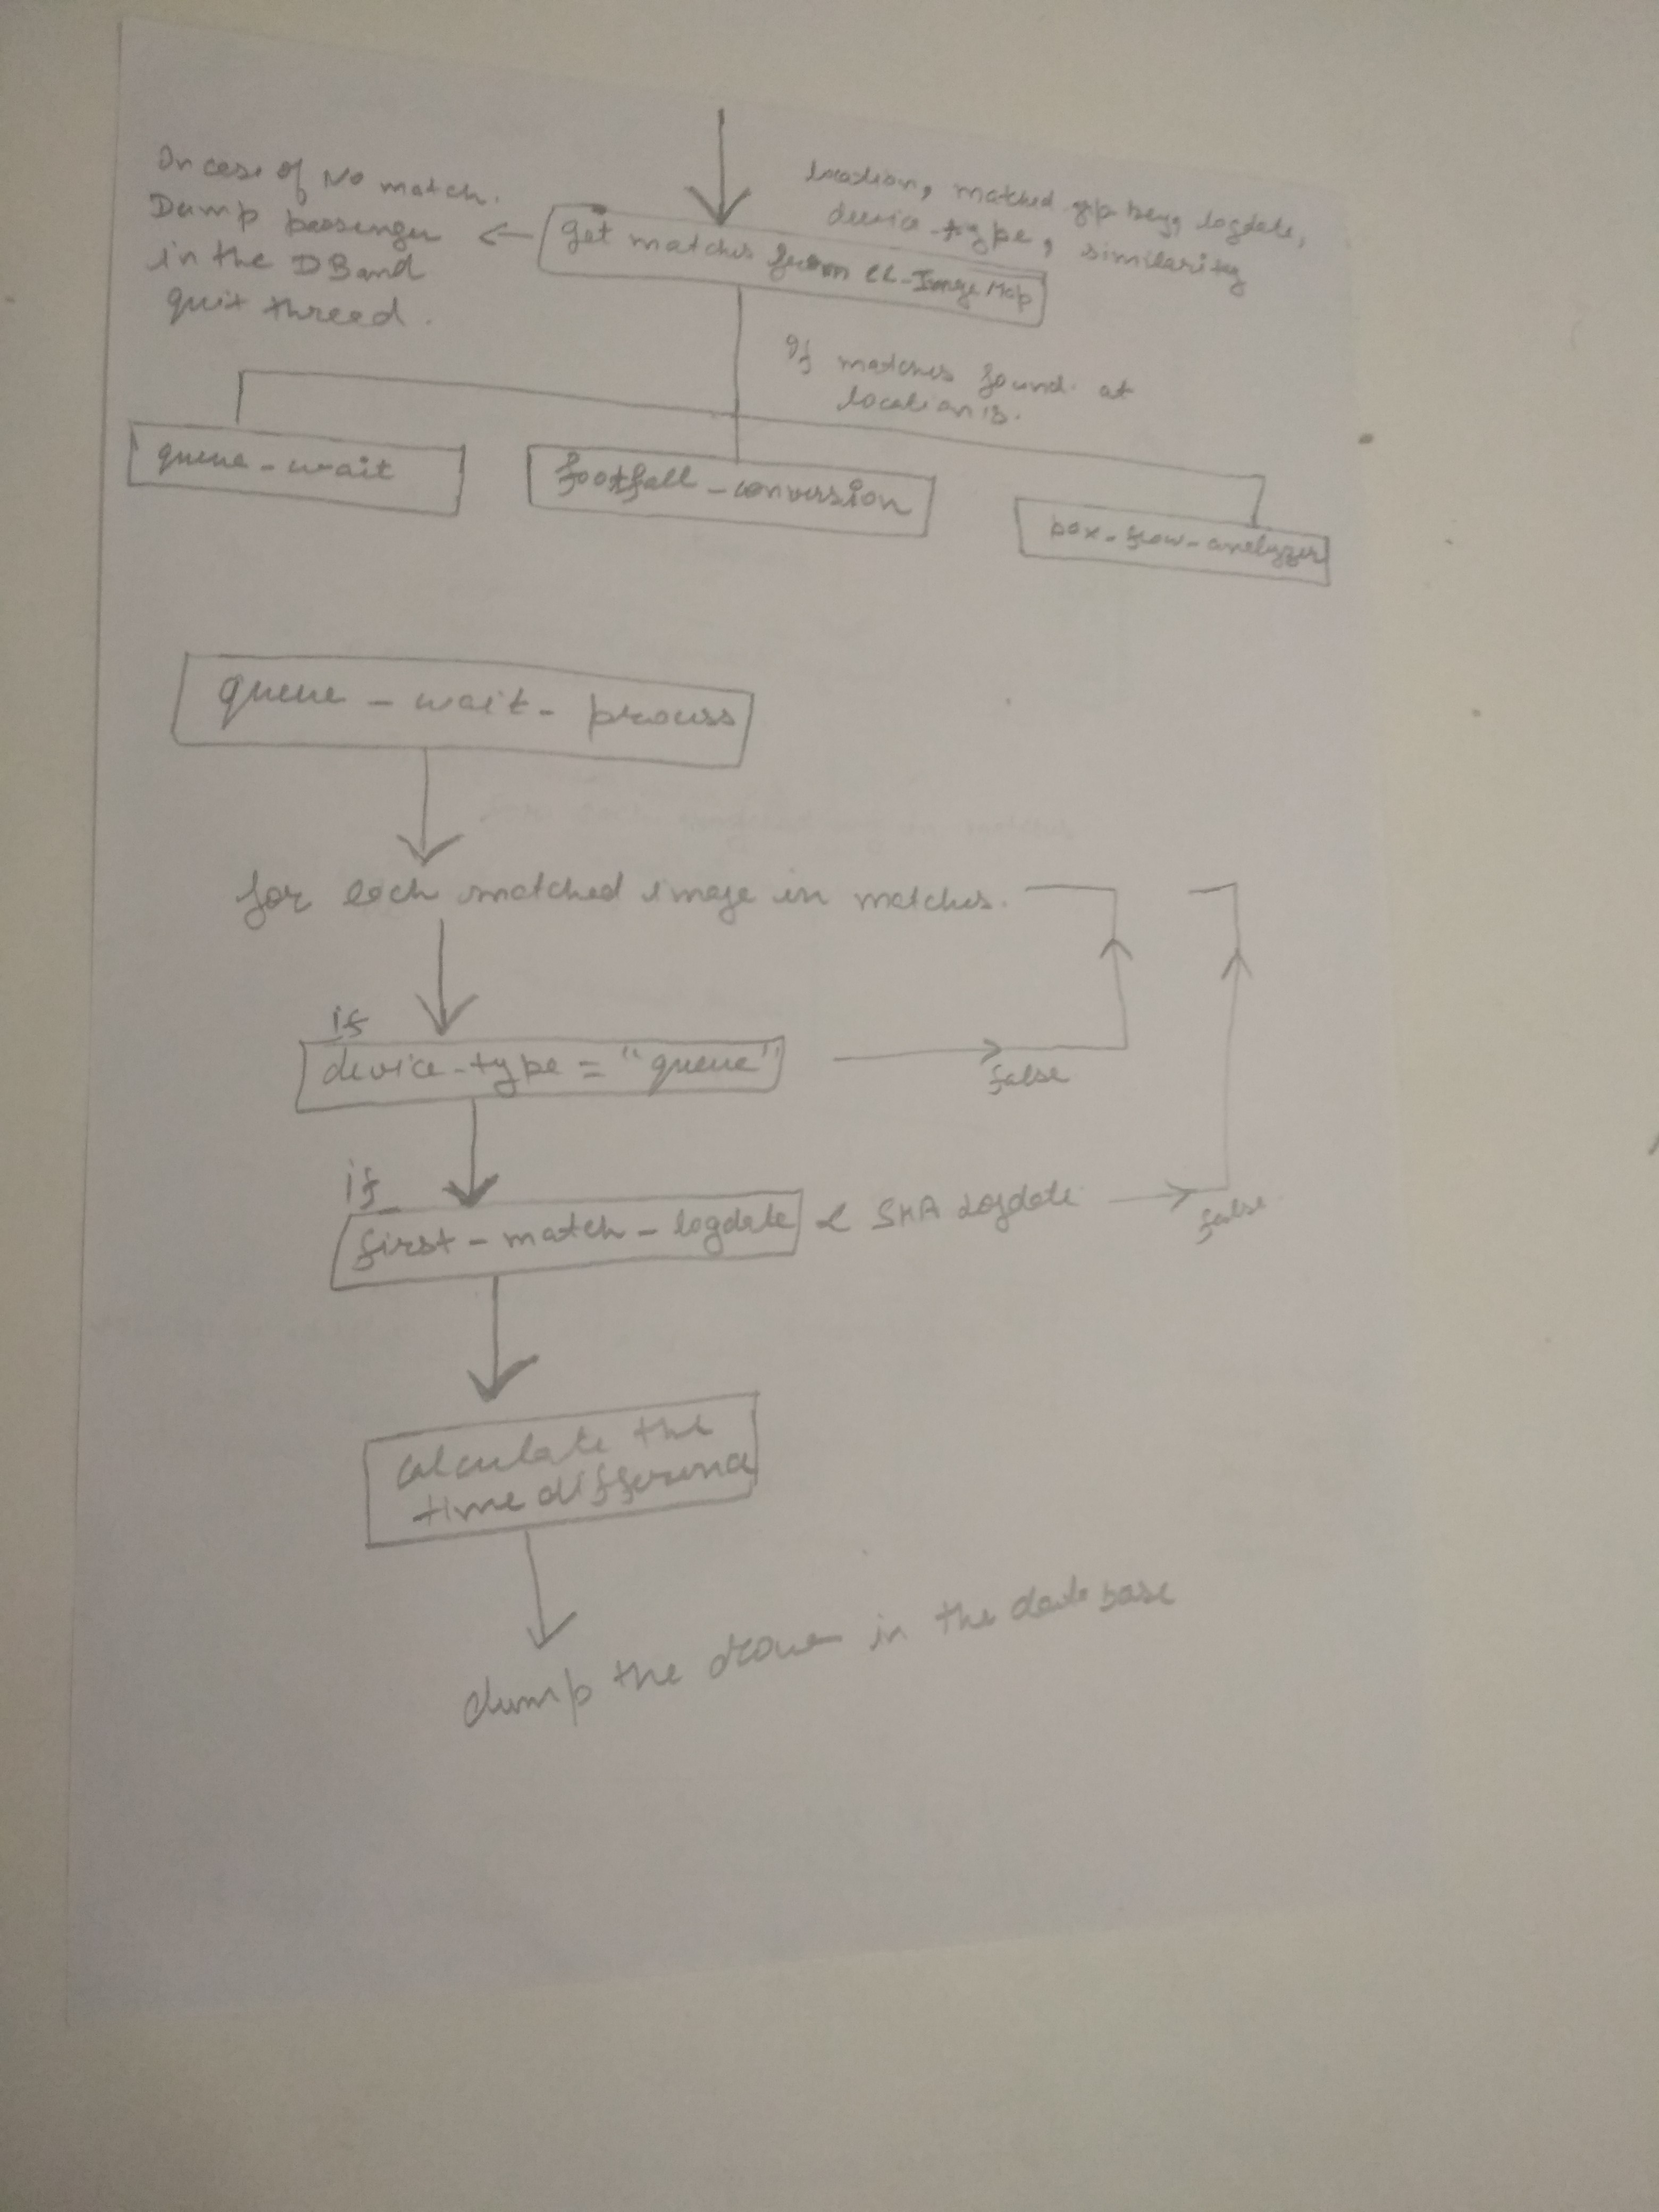 In case of No match.
Dump passenger
in the DB and
quit thread.
location, matched key, logdate,
device-type, similarity
get matches from Image Map
If matches found at
location is.
queue-wait
footfall-conversion
box-flow-analyzer
queue-wait-process
for each matched image in matches.
if
device-type = "queue"
false
if
first-match-logdate < Logdate
false
calculate the
time difference
dump the in the data base